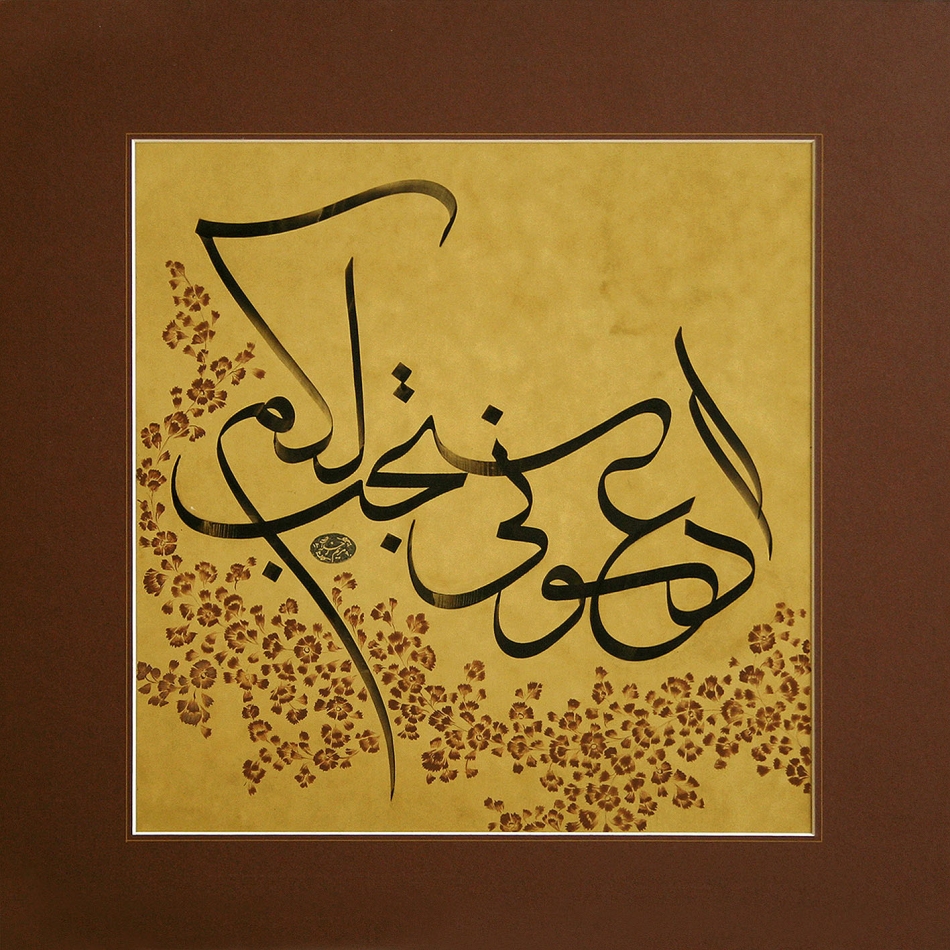 ادعونی استجب لکم